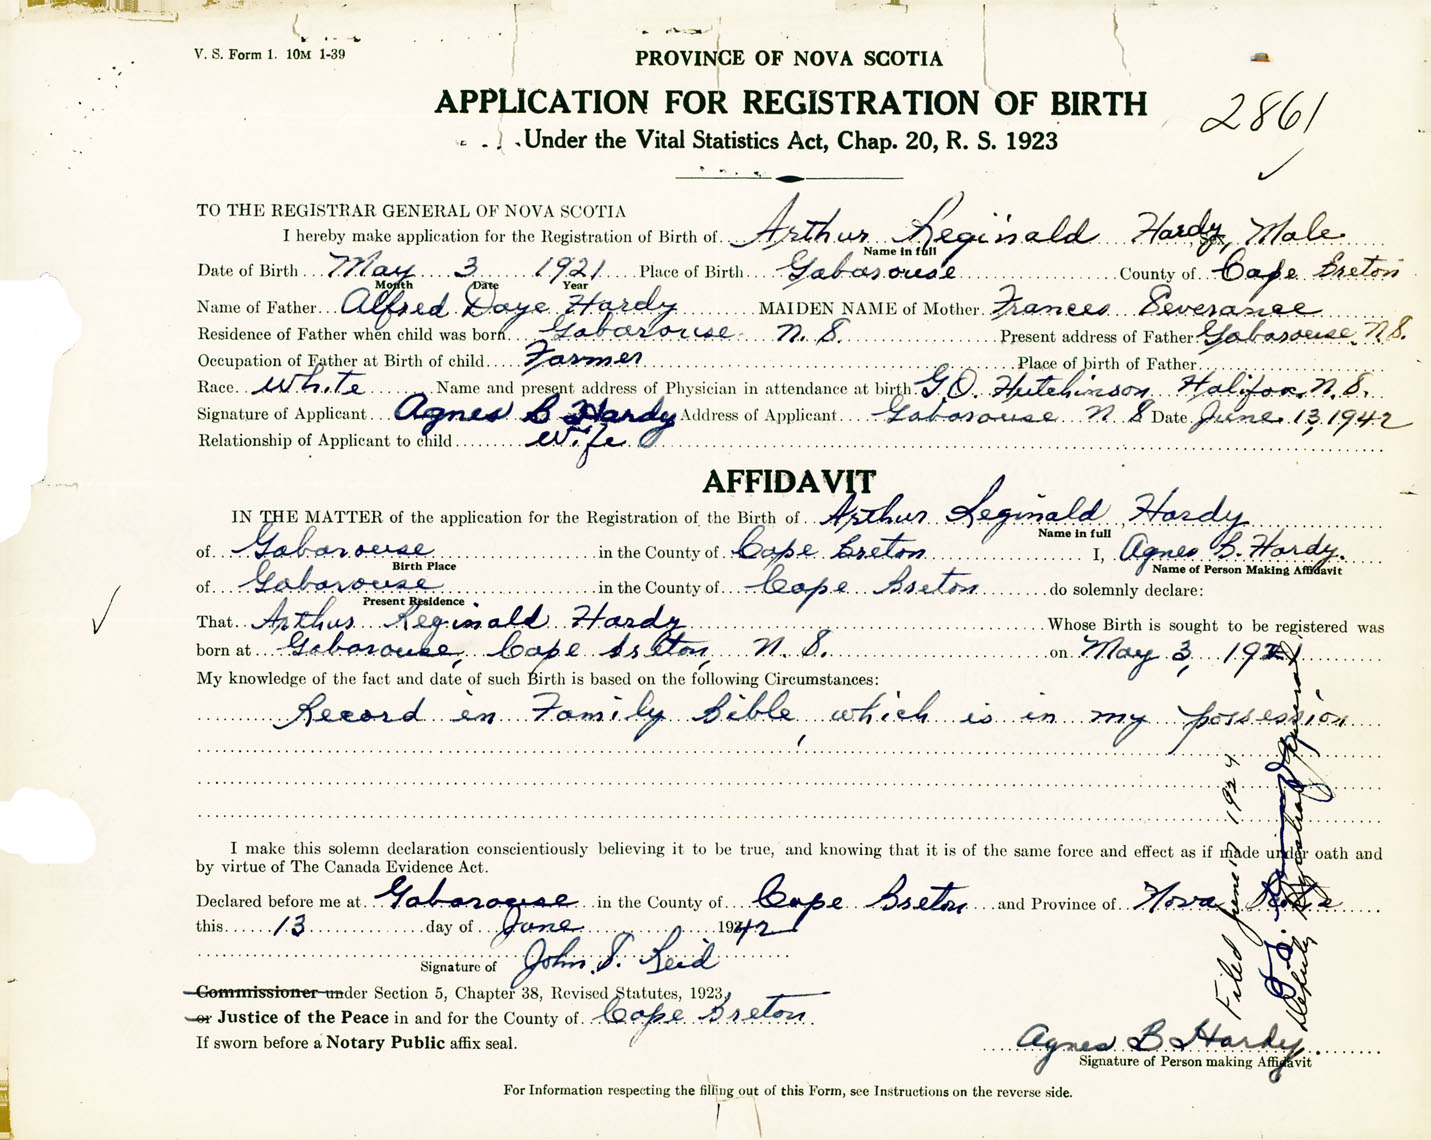 V. S. Form 1. 10M 1-39
PROVINCE OF NOVA SCOTIA
APPLICATION FOR REGISTRATION OF BIRTH
2861
Under the Vital Statistics Act, Chap. 20, R. S. 1923
TO THE REGISTRAR GENERAL OF NOVA SCOTIA
I hereby make application for the Registration of Birth of Arthur Reginald Hardy, Male
Name in full
Date of Birth May 3 1921 Place of Birth Gabarouse County of Cape Breton
Month Date Year
Name of Father Alfred Daye Hardy MAIDEN NAME of Mother Frances Severance
Residence of Father when child was born Gabarouse N. S. Present address of Father Gabarouse N.S.
Occupation of Father at Birth of child Farmer Place of birth of Father
Race White Name and present address of Physician in attendance at birth G.O. Hutchinson Halifax N.S.
Signature of Applicant Agnes B Hardy Address of Applicant Gabarouse N S Date June 13, 1942
Relationship of Applicant to child Wife
AFFIDAVIT
IN THE MATTER of the application for the Registration of the Birth of Arthur Reginald Hardy
Name in full
of Gabarouse in the County of Cape Breton I, Agnes B. Hardy.
Birth Place Name of Person Making Affidavit
of Gabarouse in the County of Cape Breton do solemnly declare:
Present Residence
That Arthur Reginald Hardy Whose Birth is sought to be registered was
born at Gabarouse, Cape Breton, N. S. on May 3, 192
My knowledge of the fact and date of such Birth is based on the following Circumstances:
Record in Family Bible, which is in my possession
I make this solemn declaration conscientiously believing it to be true, and knowing that it is of the same force and effect as if made under oath and
by virtue of The Canada Evidence Act.
Declared before me at Gabarouse in the County of Cape Breton and Province of Nova Scotia
this 13 day of June 1942
Signature of John S. Reid
Commissioner under Section 5, Chapter 38, Revised Statutes, 1923,
or Justice of the Peace in and for the County of Cape Breton
If sworn before a Notary Public affix seal.
Agnes B Hardy
Signature of Person making Affidavit
For Information respecting the filling out of this Form, see Instructions on the reverse side.
Filed June 17 1924
Deputy Registrar General